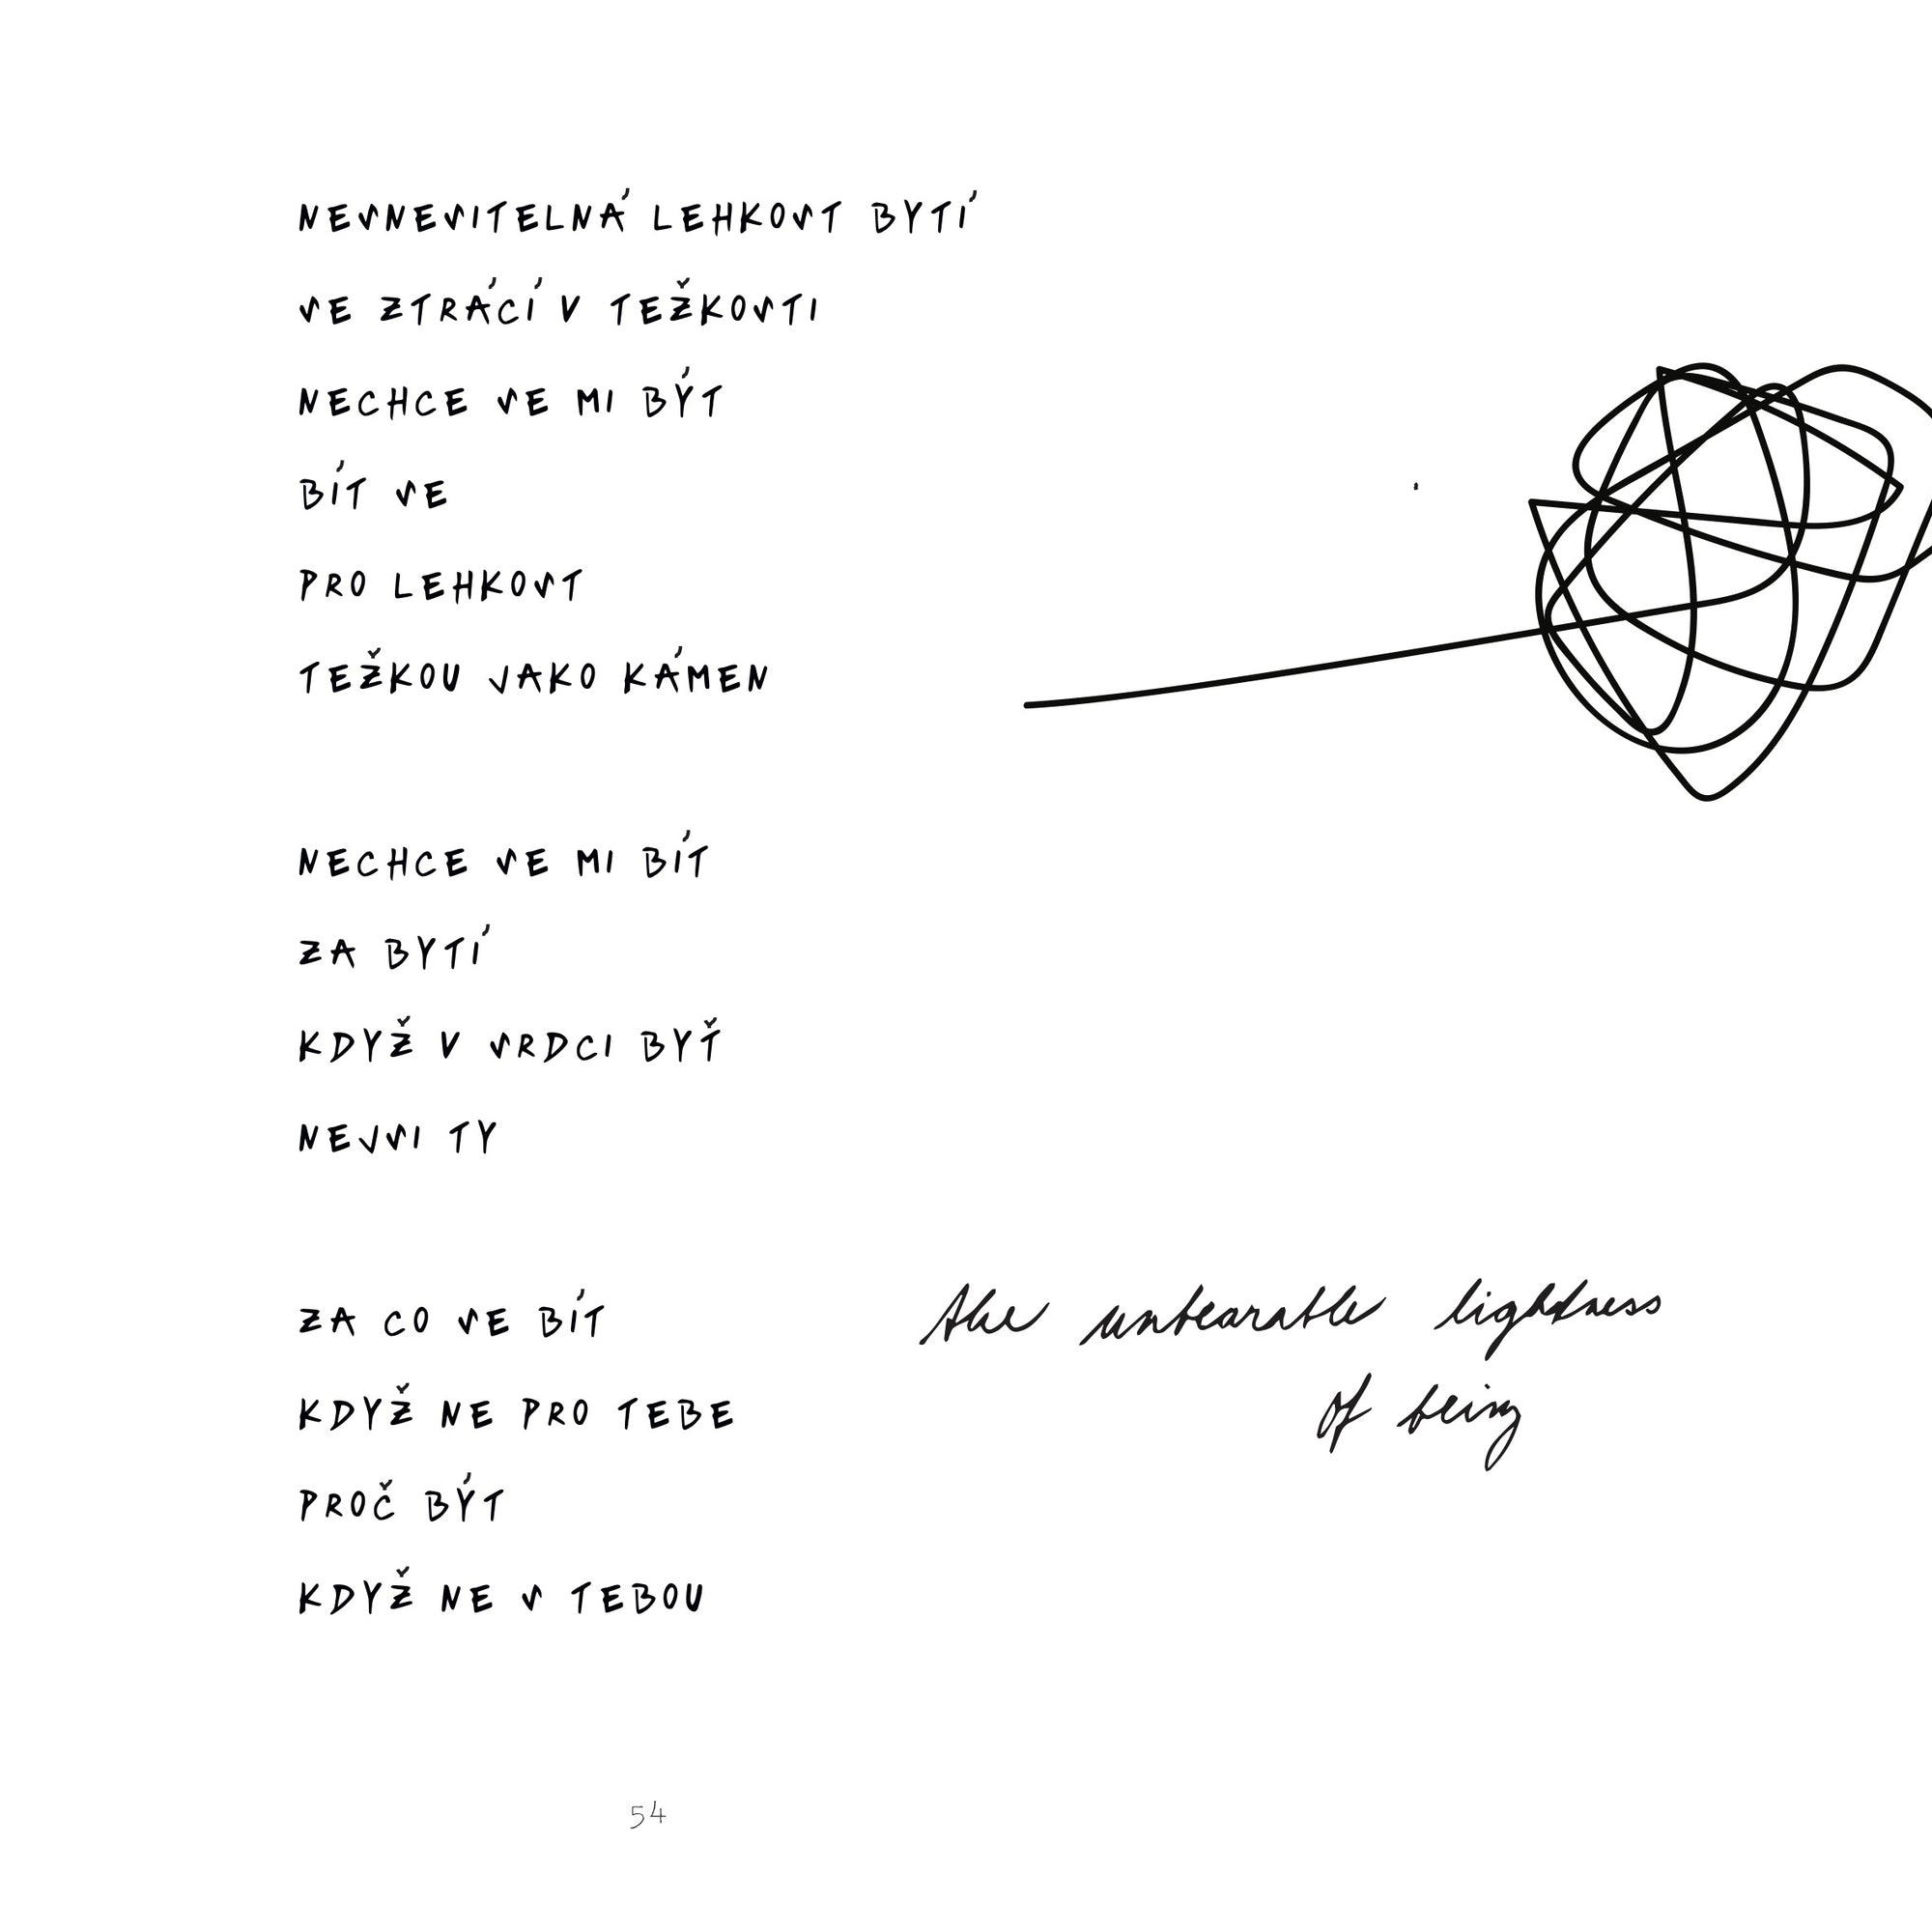 NESNESITELNÁ LEHKOST BYTÍ
SE ZTRÁCÍ V TEŽKOSTI
NECHCE SE MI BÝT
BÍT SE
PRO LEHKOST
TEŽKOU JAKO KÁMEN
NECHCE SE MI BÍT
ZA BYTÍ
KDYŽ V SRDCI BYŤ
NEJSI TY
ZA CO SE BÍT
KDYŽ NE PRO TEBE
PROČ BÝT
KDYŽ NE S TEBOU
the unbearable lightness
of being
54